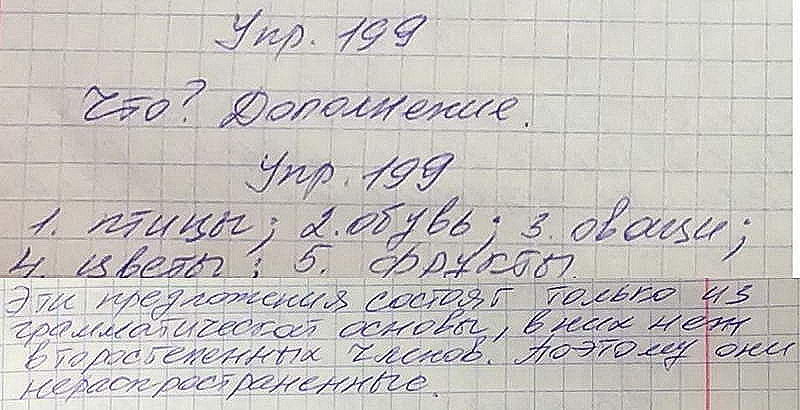 Упр. 199
Что? Дополнение.
Упр. 199
1. птицы; 2. обувь; 3. овощи;
4. цветы; 5. фрукты.
Эти предложения состоят только из
грамматической основы, в них нет
второстепенных членов. Поэтому они
нераспространенные.